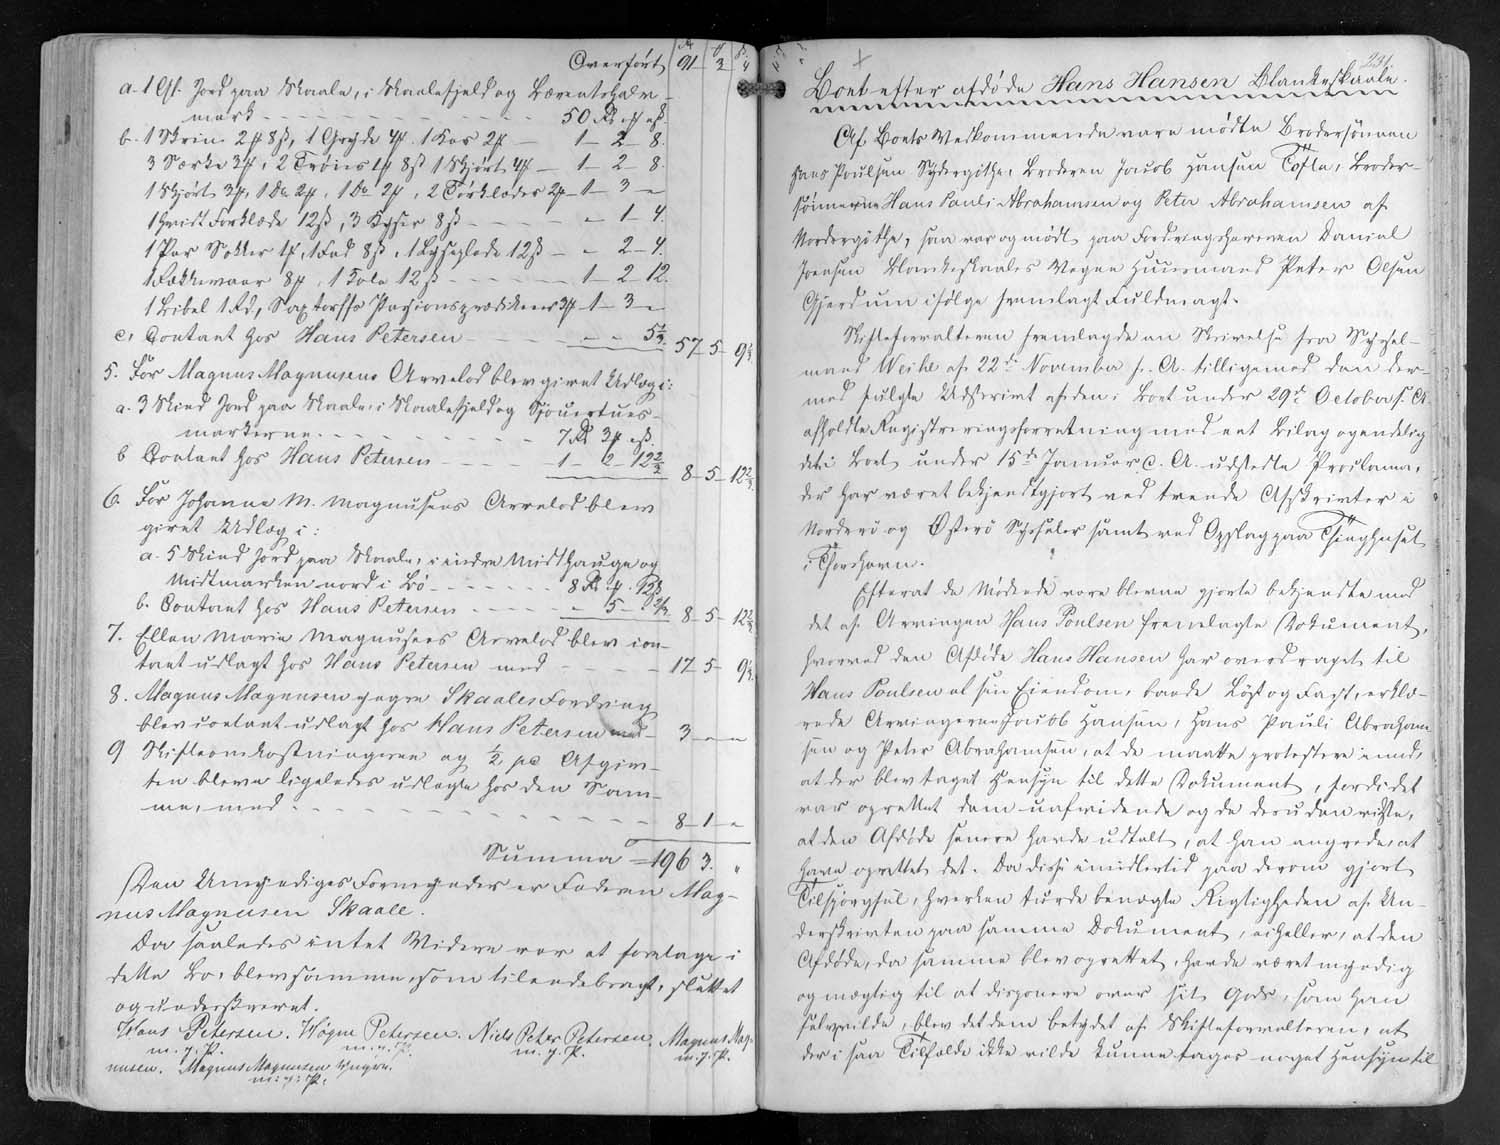 Overført 91 - 3 - 4
a. 1 Gl. Jord paa Skaale, i Skaalefjeld og Børentshalv-
mark - - - 50 Rd. „ ꝑ „ ß.
b. 1 Skrin 2 ꝑ 8 ß, 1 Gryde 4 ꝑ. 1 Kar 2 ꝑ - 1 - 2 - 8.
3 Særke 3 ꝑ, 2 Trøier 1 ꝑ 8 ß 1 Skjørt 4 ꝑ - 1 - 2 - 8.
1 Skjørt 3 ꝑ, 1 Do. 2 ꝑ, 1 Do 2 ꝑ, 2 Tørklæder 2 ꝑ - 1 - 3 - „
1 hvidt Forklæde 12 ß, 3 Kyser 8 ß - - „ - 1 - 4.
1 Par Sokker 1 ꝑ, 1 Fad 8 ß, 1 Lyseplade 12 ß - „ - 2 - 4.
1 Dækkenvaar 8 ꝑ, 1 Tole 12 ß - - - 1 - 2 12.
1 Bibel 1 Rd, Saxtorffs Passionsprædikener 3 ꝑ 1 - 3 - „
c. Contant hos Hans Petersen - - - „ - „ - 5 1/3. 57 - 5 - 9 1/3.
5. For Magnus Magnusens Arvelod blev givet Udlæg i:
a. 3 Skind Jord paa Skaale, i Skaalefjeld og Sjøvertues-
markerne - - - 7 Rd. 3 ꝑ „ ß.
b Contant hos Hans Petersen - - - 1 - 2 - 12 2/3 8 - 5 - 12 2/3.
6. For Johanne M. Magnusens Arvelod blev
givet Udlæg i:
a. 5 Skind Jord paa Skaale, i indre Midthauge og
Midtmarken nord i Bø - - - 8 Rd. „ ꝑ. 12 ß
b. Contant hos Hans Petersen - - - „ - 5 - 2/3 8 - 5 - 12 2/3.
7. Ellen Marie Magnusens Arvelod blev con-
tant udlagt hos Hans Petersen med - - 17 - 5 - 9 1/3.
8. Magnus Magnusen yngre Skaales Fordring
blev contant udlagt hos Hans Petersen med - 3 - „ - „
9 Skifteomkostningerne og 1/2 pc Afgiv-
ten bleve ligeledes udlagte hos den Sam-
me, med - - - 8 - 1 - „
Summa = 196 3. „
Den Umyndiges Formynder er Faderen Mag-
nus Magnusen Skaale.
Da saaledes intet Videre var at foretage i
dette Bo, blev samme, som tilendebragt, sluttet
og underskrevet.
Hans Petersen. Høgne Petersen. Niels Peter Petersen. Magnus Mag-
m. f. P. m. f. P. m. f. P. m. f. P.
nusen. Magnus Magnusen yngre.
m. f. P.
231.
Boet efter afdøde Hans Hansen Blankeskaale.
Af Boets Vedkommende vare mødte Brodersønnen
Hans Poulsen Sydergøthe, Broderen Jacob Hansen Tofte, Broder-
sønnerne Hans Pauli Abrahamsen og Peter Abrahamsen af
Nordregøthe, saa var og mødt paa Fordringshaveren Daniel
Joensen Blankeskaales Vegne Huusmand Peter Olsen
Gjerdum ifølge fremlagt Fuldmagt.
Skifteforvalteren fremlagde en Skrivelse fra Syssel-
mand Weihe af 22de November f. A. tilligemed den der-
med fulgte Udskrivt af den i Boet under 29de October s. A.
afholdte Registreringsforretning med eet Bilag og endelig
det i Boet under 15de Januar c. A. udstedte Proclama,
der har været bekjendtgjort ved trende Afskrivter i
Norderø og Østerø Sysseler samt ved Opslag paa Thinghuset
i Thorshavn.
Efterat de Mødende vare blevne gjorte bekjendte med
det af Arvingen Hans Poulsen fremlagte Dokument,
hvorved den Afdøde Hans Hansen har overdraget til
Hans Poulsen al sin Eiendom, baade Løst og Fast, erklæ-
rede Arvingerne Jacob Hansen, Hans Pauli Abraham-
sen og Peter Abrahamsen, at de maatte protestere imod,
at der blev taget Hensyn til dette Dokument, fordi det
var oprettet dem uafvidende og de desuden vidste,
at den Afdøde senere havde udtalt, at han angrede at
have oprettet det. Da disse imidlertid paa derom gjort
Tilspørgsel, hverken turde benægte Rigtigheden af Un-
derskrivten paa samme Dokument, ei heller, at den
Afdøde, da samme blev oprettet, havde været myndig
og mægtig til at disponere over sit Gods, som han
selv vilde, blev det dem betydet af Skifteforvalteren, at
der i saa Tilfælde ikke vilde kunne tages noget Hensyn til